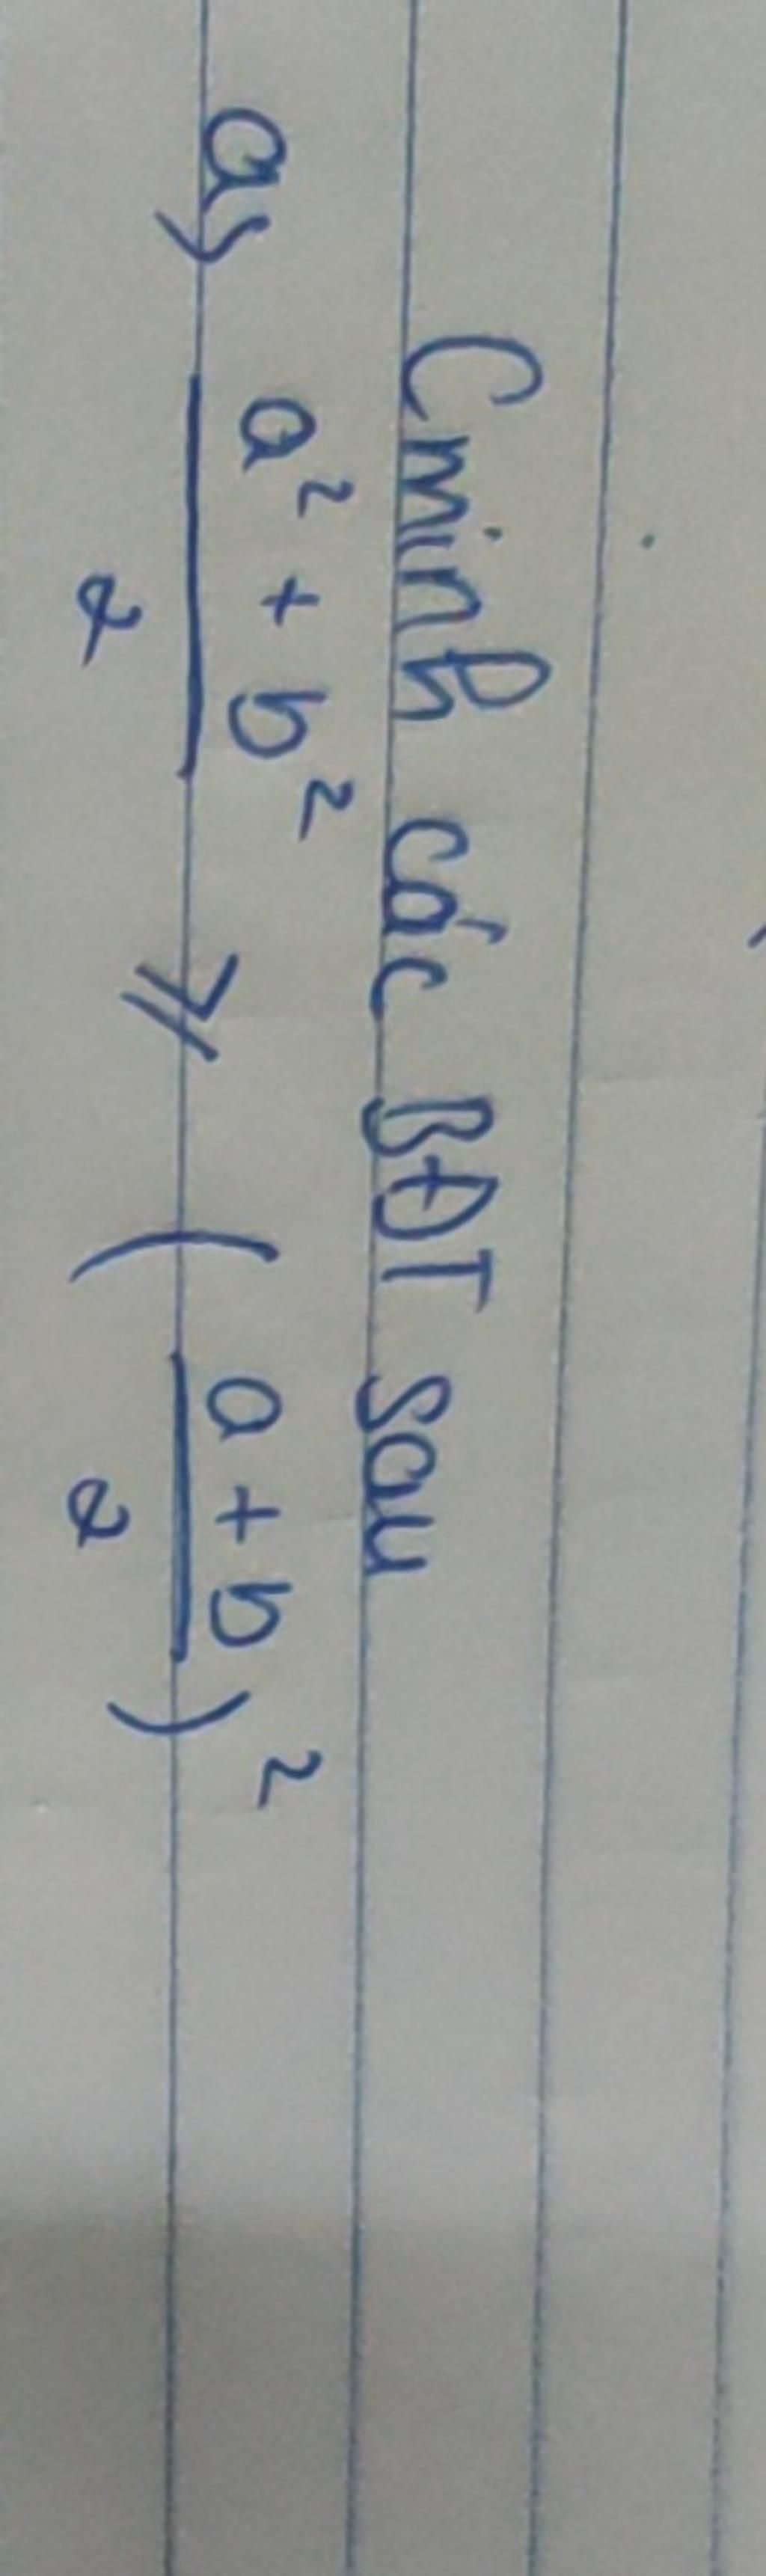 Cminh các BĐT sau
a) \frac{a² + b²}{2} ≥ (\frac{a + b}{2})²